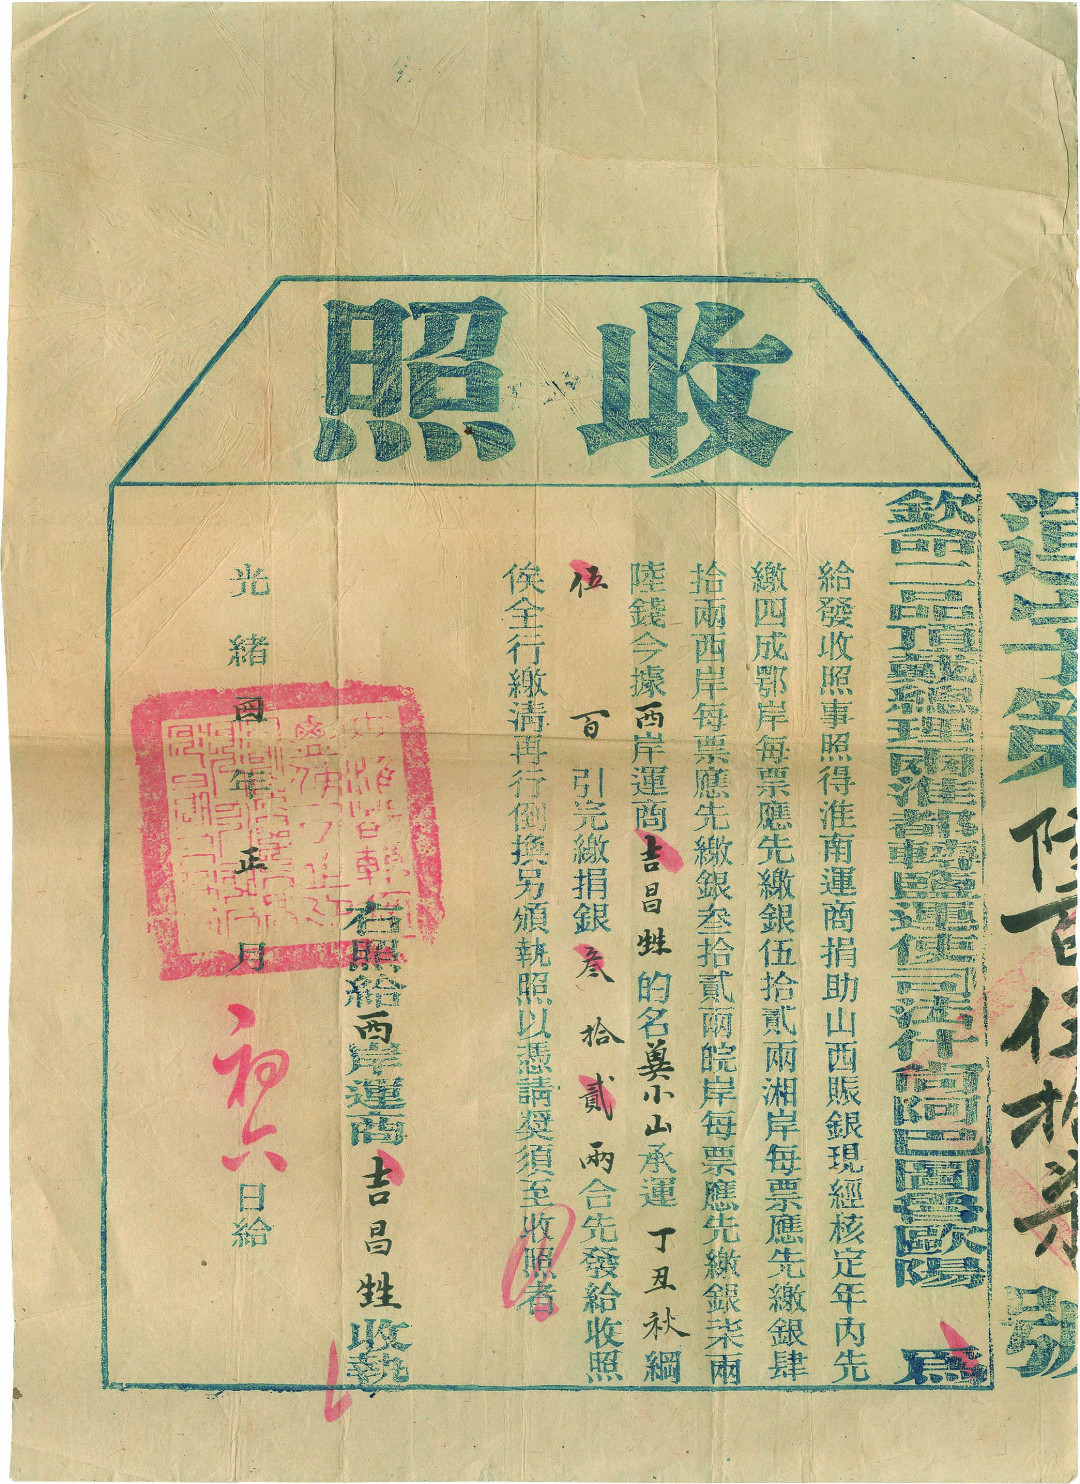 收照
追字第陸百伍拾柒號
欽命二品頂戴總理兩淮都轉鹽運使司法什尚阿巴圖魯歐陽 爲
給發收照事照得淮南運商捐助山西賑銀現經核定年內先
繳四成鄂岸每票應先繳銀伍拾貳兩湘岸每票應先繳銀肆
拾兩西岸每票應先繳銀叁拾貳兩皖岸每票應先繳銀柒兩
陸錢今據西岸運商吉昌甡的名奠小山承運丁丑秋綱
伍百引完繳捐銀叁拾貳兩合先發給收照
俟全行繳清再行倒換另頒執照以憑請奬須至收照者
右照給西岸運商吉昌甡收執
光緒四年正月初六日給